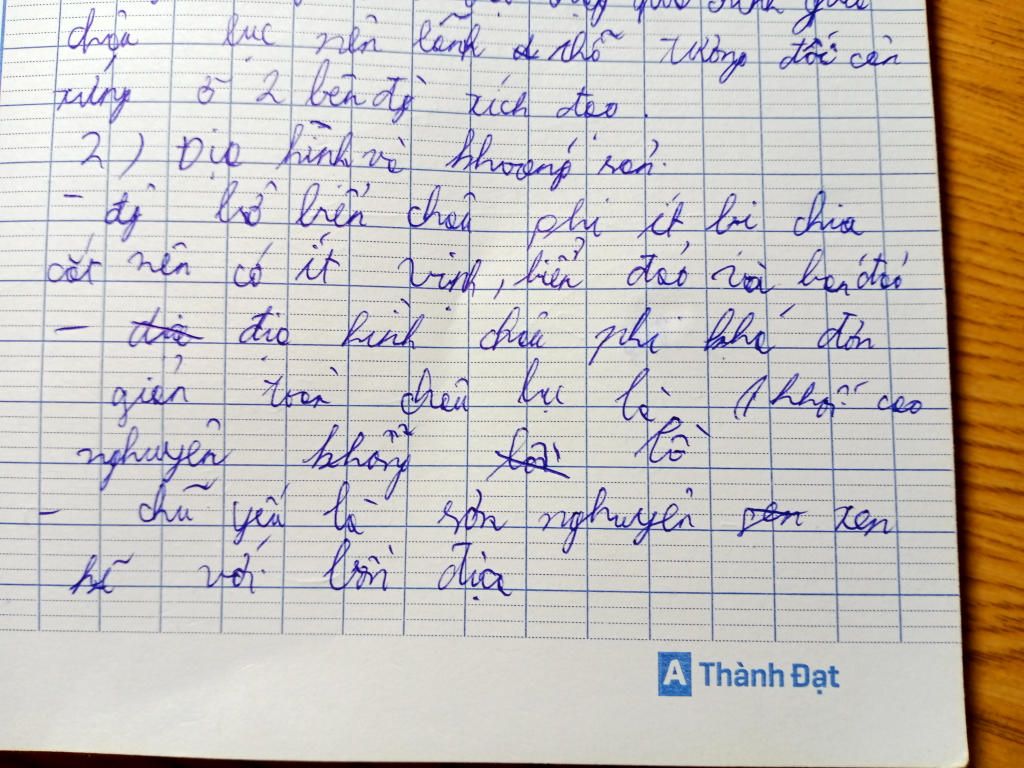 châu lục nên lãnh thổ tương đối cân
xứng ở 2 bên đg xích đạo.
2) Địa hình và khoáng sản.
- đg bờ biển châu phi ít bị chia
cắt nên có ít vịnh, biển đảo và bán đảo
- địa hình châu phi khá đơn
giản toàn châu lục là 1 khối cao
nguyên khổng lồ
- chủ yếu là sơn nguyên xen
kẽ với bồn địa
A Thành Đạt